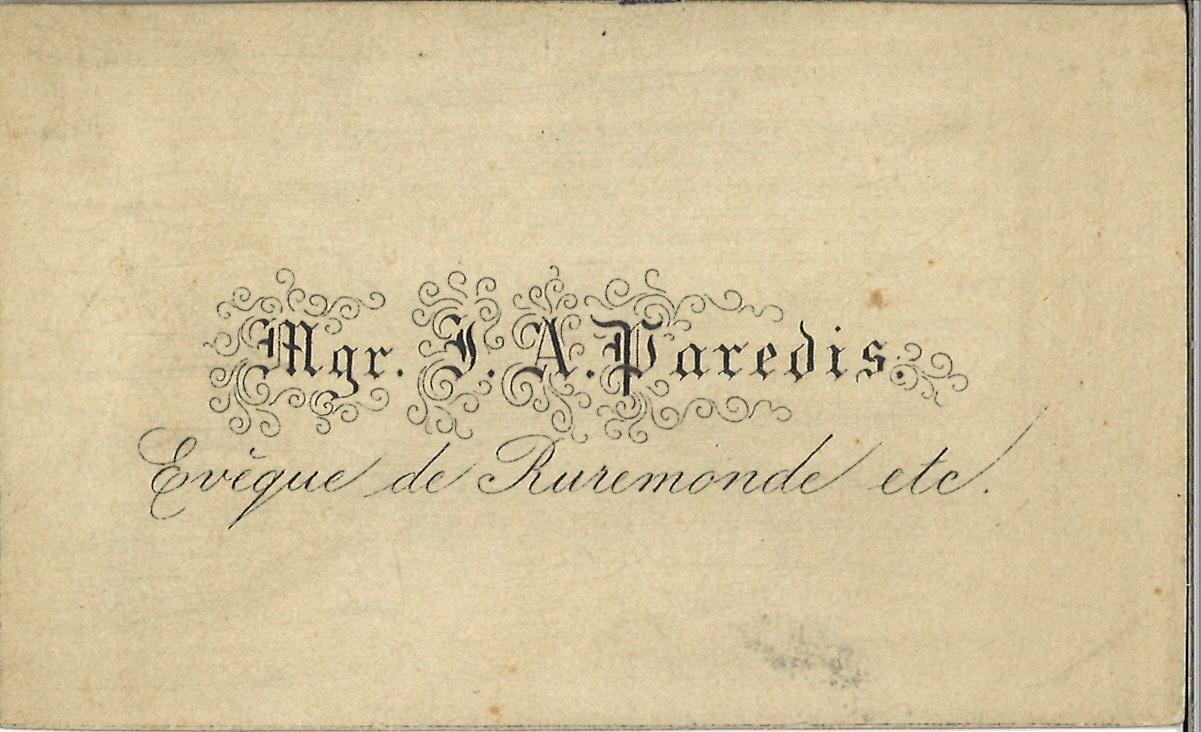 Mgr. J. A. Paredis.
Evêque de Ruremonde etc.